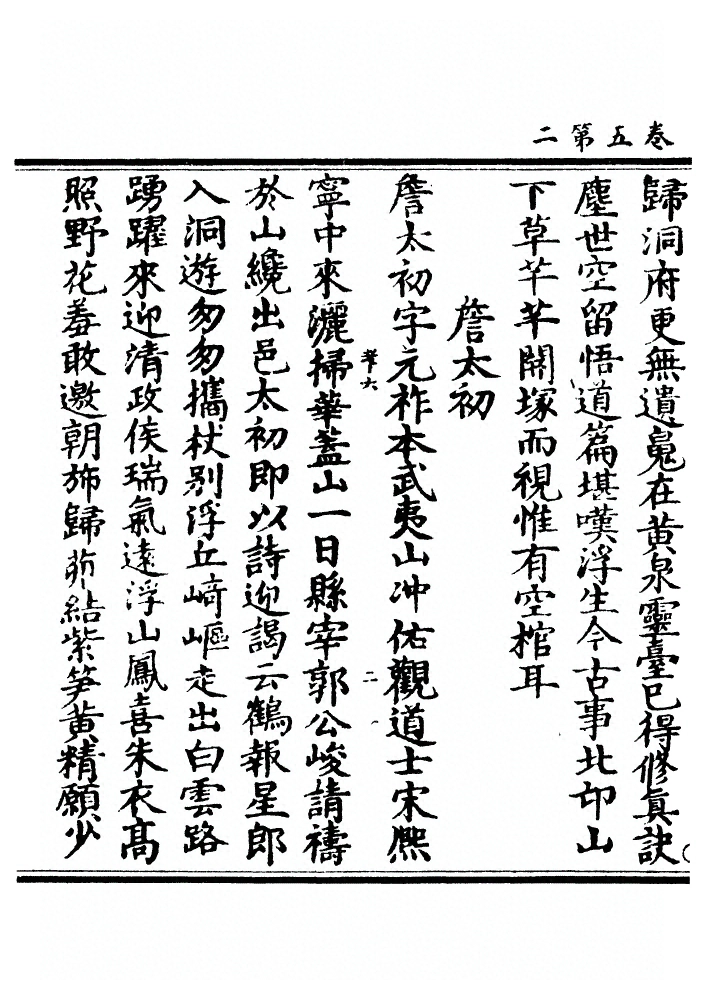 卷五第二
歸洞府更無遺䰟在黄泉靈臺已得修眞訣
塵世空留悟道篇堪嘆浮生今古事北邙山
下草芊芊開塚而視惟有空棺耳
詹太初
詹太初字元祚本武夷山冲佑觀道士宋熈
寧中來灑掃華葢山一日縣宰郭公峻請禱
於山纔出邑太初即以詩迎謁云鶴報星郎
入洞遊匆匆攜杖别浮丘﨑嶇走出白雲路
踴躍來迎清政侯瑞氣遠浮山鳳喜朱衣髙
照野花羞敢邀朝斾歸茆結紫笋黄精願少
二